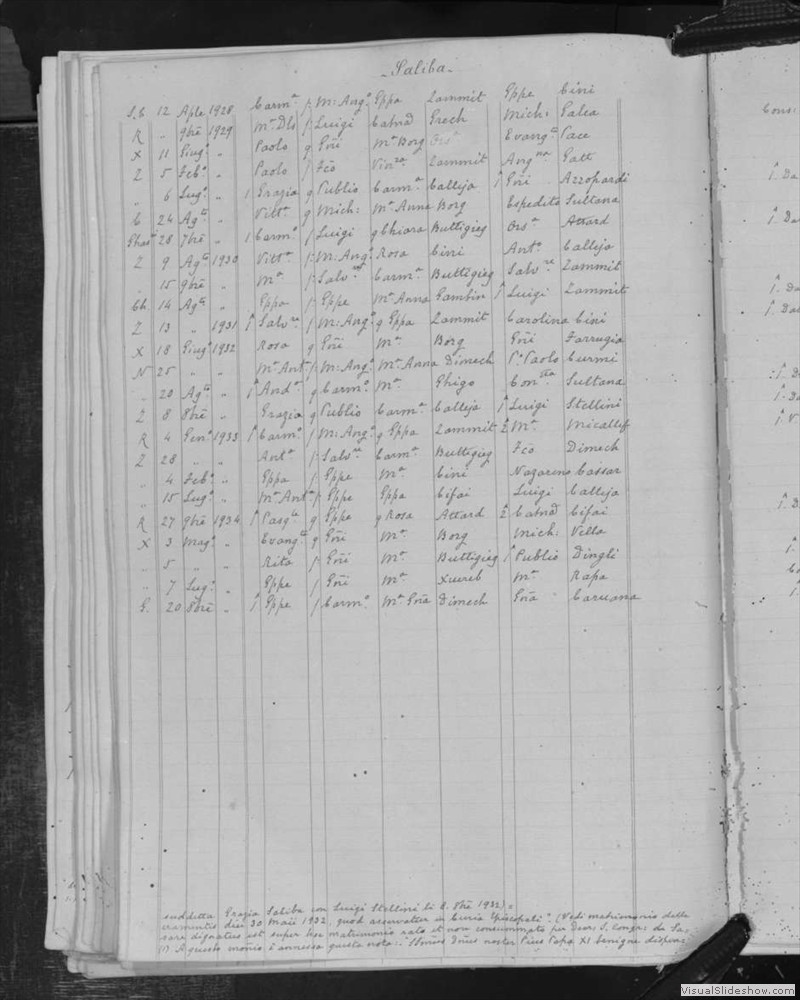 Saliba
S.C 12 Aple 1928 Carmª f M: Angº Eppa Zammit Eppe Cini
R " 9bre 1929 Mª Dls f Luigi Catnā Grech Mich: Galea
X 11 Giugº " Paolo g Gñi Mª Borg Evangta Pace
Z 5 Febº " Paolo f Fcō Vinza Zammit Angna Gatt
" 6 Lugº " 1 Grazia g Publio Carmª Calleja 1 Gñi Azzopardi
C 24 Agto " Vittª g Mich: Mª Anna Borg Espedito Sultana
Ghasri 28 7bre " 1 Carmº f Luigi g Chiara Buttigieg Orsª Attard
Z 9 Agto 1930 Vittª f M: Angº Rosa Cini Antº Calleja
" 15 9bre " Mª f Salvre Carmª Buttigieg Salvre Zammit
Ch. 14 Agto " Eppa f Eppe Mª Anna Gambin 1 Luigi Zammit
Z 13 " 1931 1 Salvre f M: Angº g Eppa Zammit Carolina Cini
X 18 Giugº 1932 Rosa g Gñi Mª Borg Gñi Farrugia
N 25 " " Mª Antª f M: Angº Mª Anna Dimech P. Paolo Curmi
" 20 Agto " 1 Andª g Carmº Mª Ghigo Conta Sultana
Z 8 8bre " Grazia g Publio Carmª Calleja 1 Luigi Stellini
R 4 Genº 1933 1 Carmº f M: Angº g Eppa Zammit 2 Mª Micallef
Z 28 " " Antª f Salvre Carmª Buttigieg Fcō Dimech
" 4 Febº " Eppa f Eppe Mª Cini Nazareno Cassar
" 15 Lugº " Mª Antª f Eppe Eppa Cifai Luigi Calleja
R 27 9bre 1934 1 Pasqle g Eppe g Rosa Attard 2 Catnā Cifai
X 3 Magº " Evangta g Gñi Mª Borg Mich: Vella
" 5 " " Rita f Gñi Mª Buttigieg 1 Publio Dingli
" 7 Lugº " Eppe f Gñi Mª Xuereb Mª Rapa
G. 20 8bre " 1 Eppe f Carmº Mª Gña Dimech Gña Caruana
suddetta Grazia Saliba con Luigi Stellini li 8. 8bre 1932).
cramentis diei 30 Maii 1932, quod asservatur in Curia Episcopali." (Vedi matrimonio della
sare dignatus est super hoc matrimonio rato et non consummato per Decr: S. Congr: de Sa-
(1) A questo monio è annessa questa nota:- "Ssmus Dnus noster Pius Papa XI benigne dispen-
VisualSlideshow.com